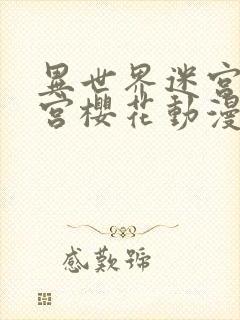 異世界迷宮
宮櫻花動漫
感歎號